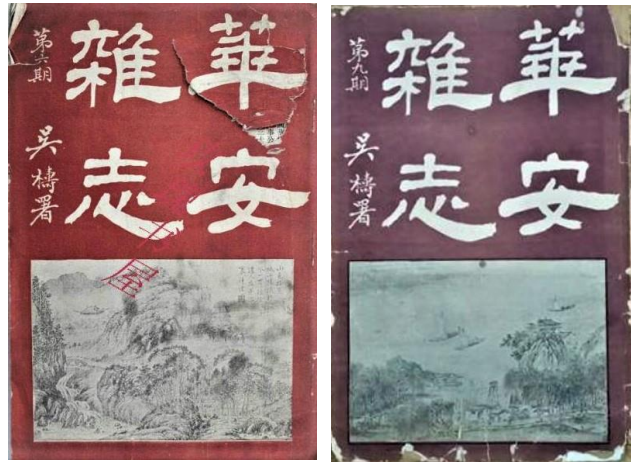 華安
雜志
第六期
吳檮署
華安
雜志
第九期
吳檮署